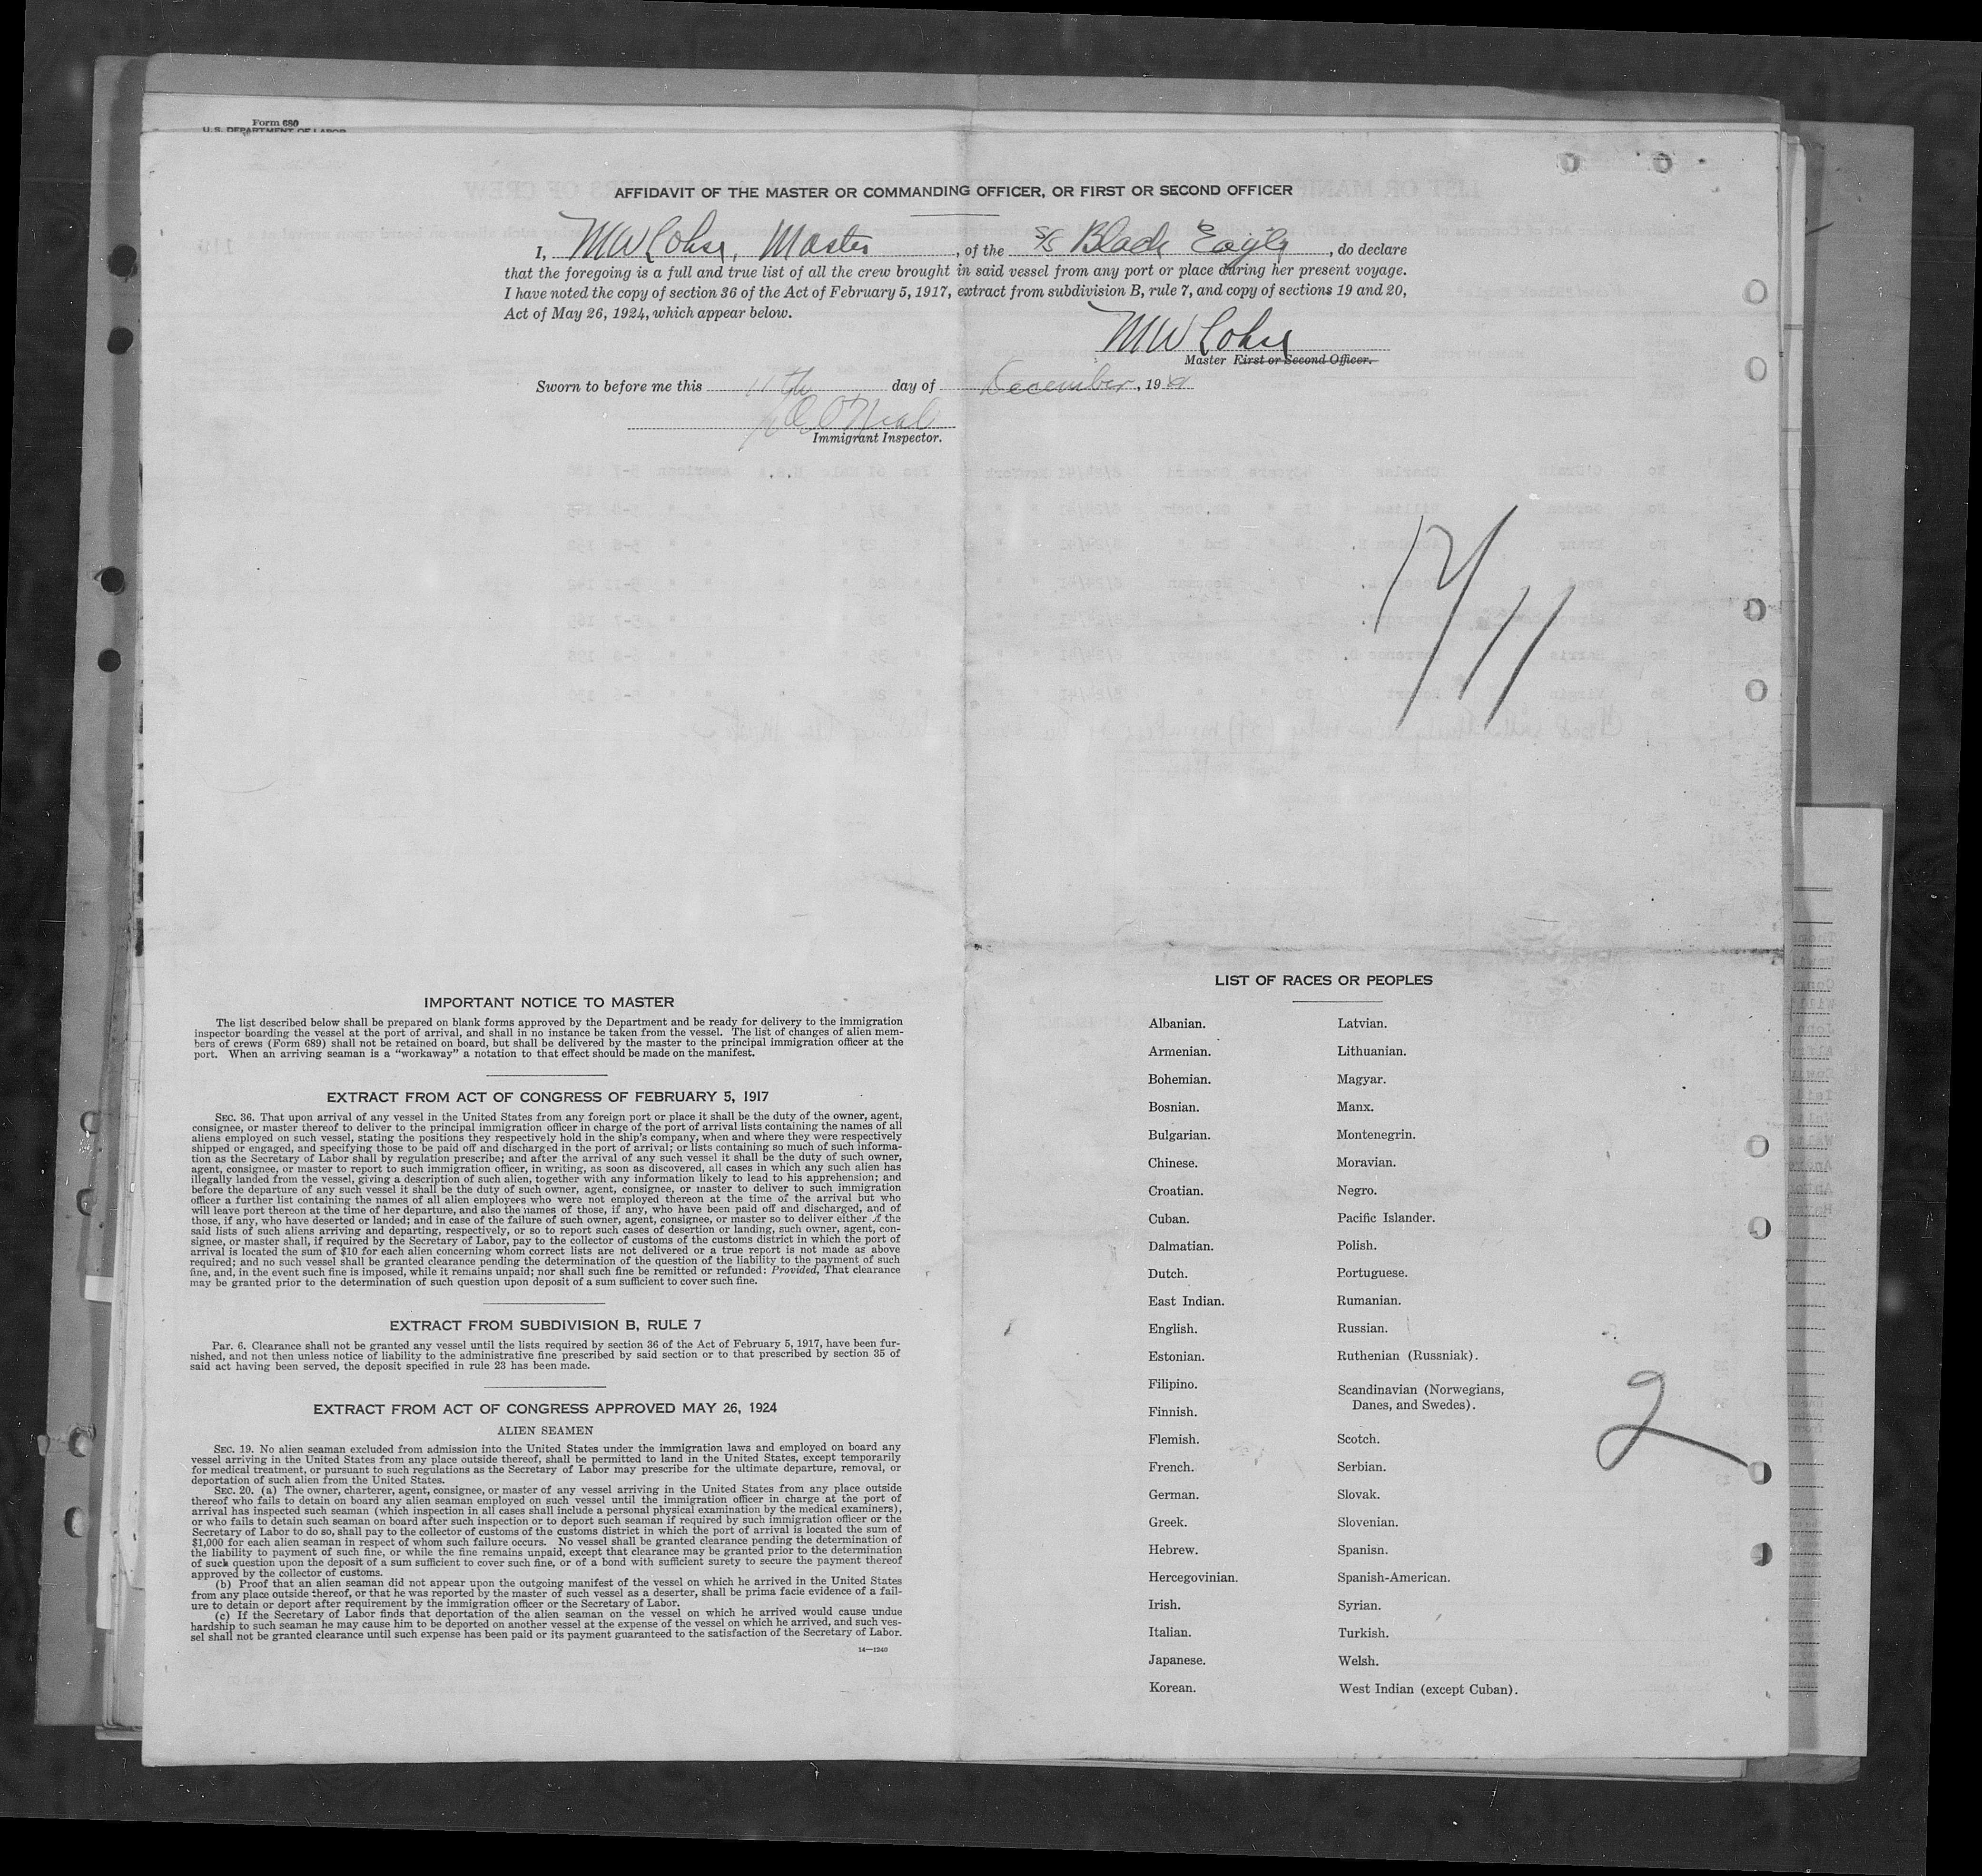 Form 680
U. S. DEPARTMENT OF LABOR
AFFIDAVIT OF THE MASTER OR COMMANDING OFFICER, OR FIRST OR SECOND OFFICER
I, M W Lohse, Master, of the S/S Black Eagle, do declare
that the foregoing is a full and true list of all the crew brought in said vessel from any port or place during her present voyage.
I have noted the copy of section 36 of the Act of February 5, 1917, extract from subdivision B, rule 7, and copy of sections 19 and 20,
Act of May 26, 1924, which appear below.
M W Lohse
Master First or Second Officer.
Sworn to before me this 11th day of December, 19
Immigrant Inspector.
12/11
IMPORTANT NOTICE TO MASTER
The list described below shall be prepared on blank forms approved by the Department and be ready for delivery to the immigration
inspector boarding the vessel at the port of arrival, and shall in no instance be taken from the vessel. The list of changes of alien mem-
bers of crews (Form 689) shall not be retained on board, but shall be delivered by the master to the principal immigration officer at the
port. When an arriving seaman is a "workaway" a notation to that effect should be made on the manifest.
EXTRACT FROM ACT OF CONGRESS OF FEBRUARY 5, 1917
SEC. 36. That upon arrival of any vessel in the United States from any foreign port or place it shall be the duty of the owner, agent,
consignee, or master thereof to deliver to the principal immigration officer in charge of the port of arrival lists containing the names of all
aliens employed on such vessel, stating the positions they respectively hold in the ship's company, when and where they were respectively
shipped or engaged, and specifying those to be paid off and discharged in the port of arrival; or lists containing so much of such informa-
tion as the Secretary of Labor shall by regulation prescribe; and after the arrival of any such vessel it shall be the duty of such owner,
agent, consignee, or master to report to such immigration officer, in writing, as soon as discovered, all cases in which any such alien has
illegally landed from the vessel, giving a description of such alien, together with any information likely to lead to his apprehension; and
before the departure of any such vessel it shall be the duty of such owner, agent, consignee, or master to deliver to such immigration
officer a further list containing the names of all alien employees who were not employed thereon at the time of the arrival but who
will leave port thereon at the time of her departure, and also the names of those, if any, who have been paid off and discharged, and of
those, if any, who have deserted or landed; and in case of the failure of such owner, agent, consignee, or master so to deliver either of the
said lists of such aliens arriving and departing, respectively, or so to report such cases of desertion or landing, such owner, agent, con-
signee, or master shall, if required by the Secretary of Labor, pay to the collector of customs of the customs district in which the port of
arrival is located the sum of $10 for each alien concerning whom correct lists are not delivered or a true report is not made as above
required; and no such vessel shall be granted clearance pending the determination of the question of the liability to the payment of such
fine, and, in the event such fine is imposed, while it remains unpaid; nor shall such fine be remitted or refunded: Provided, That clearance
may be granted prior to the determination of such question upon deposit of a sum sufficient to cover such fine.
EXTRACT FROM SUBDIVISION B, RULE 7
Par. 6. Clearance shall not be granted any vessel until the lists required by section 36 of the Act of February 5, 1917, have been fur-
nished, and not then unless notice of liability to the administrative fine prescribed by said section or to that prescribed by section 35 of
said act having been served, the deposit specified in rule 23 has been made.
EXTRACT FROM ACT OF CONGRESS APPROVED MAY 26, 1924
ALIEN SEAMEN
SEC. 19. No alien seaman excluded from admission into the United States under the immigration laws and employed on board any
vessel arriving in the United States from any place outside thereof, shall be permitted to land in the United States, except temporarily
for medical treatment, or pursuant to such regulations as the Secretary of Labor may prescribe for the ultimate departure, removal, or
deportation of such alien from the United States.
SEC. 20. (a) The owner, charterer, agent, consignee, or master of any vessel arriving in the United States from any place outside
thereof who fails to detain on board any alien seaman employed on such vessel until the immigration officer in charge at the port of
arrival has inspected such seaman (which inspection in all cases shall include a personal physical examination by the medical examiners),
or who fails to detain such seaman on board after such inspection or to deport such seaman if required by such immigration officer or the
Secretary of Labor to do so, shall pay to the collector of customs of the customs district in which the port of arrival is located the sum of
$1,000 for each alien seaman in respect of whom such failure occurs. No vessel shall be granted clearance pending the determination of
the liability to payment of such fine, or while the fine remains unpaid, except that clearance may be granted prior to the determination
of such question upon the deposit of a sum sufficient to cover such fine, or of a bond with sufficient surety to secure the payment thereof
approved by the collector of customs.
(b) Proof that an alien seaman did not appear upon the outgoing manifest of the vessel on which he arrived in the United States
from any place outside thereof, or that he was reported by the master of such vessel as a deserter, shall be prima facie evidence of a fail-
ure to detain or deport after requirement by the immigration officer or the Secretary of Labor.
(c) If the Secretary of Labor finds that deportation of the alien seaman on the vessel on which he arrived would cause undue
hardship to such seaman he may cause him to be deported on another vessel at the expense of the vessel on which he arrived, and such ves-
sel shall not be granted clearance until such expense has been paid or its payment guaranteed to the satisfaction of the Secretary of Labor.
14—1240
LIST OF RACES OR PEOPLES
Albanian.
Armenian.
Bohemian.
Bosnian.
Bulgarian.
Chinese.
Croatian.
Cuban.
Dalmatian.
Dutch.
East Indian.
English.
Estonian.
Filipino.
Finnish.
Flemish.
French.
German.
Greek.
Hebrew.
Hercegovinian.
Irish.
Italian.
Japanese.
Korean.
Latvian.
Lithuanian.
Magyar.
Manx.
Montenegrin.
Moravian.
Negro.
Pacific Islander.
Polish.
Portuguese.
Rumanian.
Russian.
Ruthenian (Russniak).
Scandinavian (Norwegians,
Danes, and Swedes).
Scotch.
Serbian.
Slovak.
Slovenian.
Spanish.
Spanish-American.
Syrian.
Turkish.
Welsh.
West Indian (except Cuban).
2